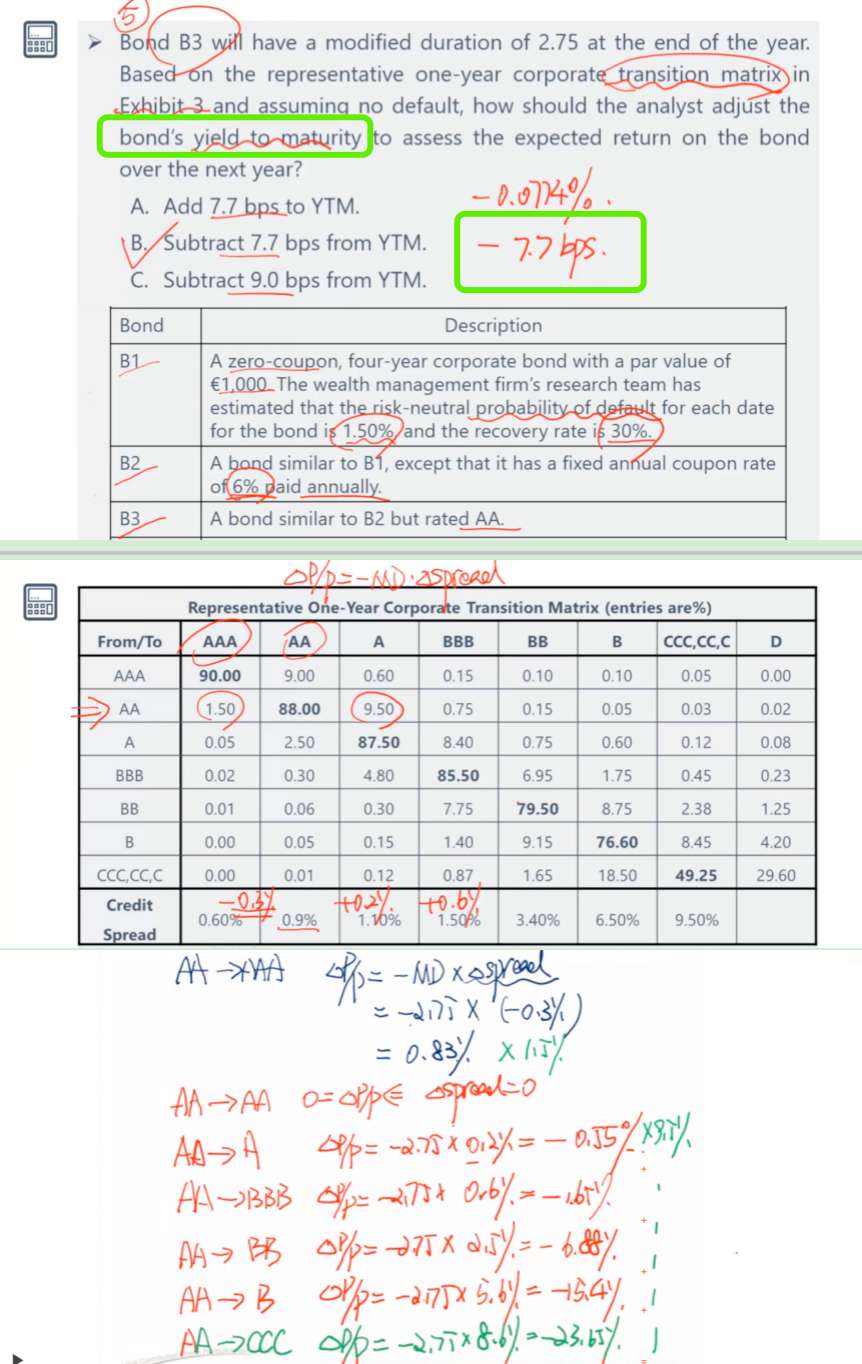 ⑤
➤ Bond B3 will have a modified duration of 2.75 at the end of the year.
Based on the representative one-year corporate transition matrix in
Exhibit 3 and assuming no default, how should the analyst adjust the
bond's yield to maturity to assess the expected return on the bond
over the next year?
-0.0774%.
A. Add 7.7 bps to YTM.
B. Subtract 7.7 bps from YTM.
- 7.7 bps.
C. Subtract 9.0 bps from YTM.
Bond Description
B1 A zero-coupon, four-year corporate bond with a par value of
€1,000. The wealth management firm's research team has
estimated that the risk-neutral probability of default for each date
for the bond is 1.50% and the recovery rate is 30%.
B2 A bond similar to B1, except that it has a fixed annual coupon rate
of 6% paid annually.
B3 A bond similar to B2 but rated AA.
△P/P = -MD·△spread
Representative One-Year Corporate Transition Matrix (entries are%)
From/To AAA AA A BBB BB B CCC,CC,C D
AAA 90.00 9.00 0.60 0.15 0.10 0.10 0.05 0.00
⇒ AA 1.50 88.00 9.50 0.75 0.15 0.05 0.03 0.02
A 0.05 2.50 87.50 8.40 0.75 0.60 0.12 0.08
BBB 0.02 0.30 4.80 85.50 6.95 1.75 0.45 0.23
BB 0.01 0.06 0.30 7.75 79.50 8.75 2.38 1.25
B 0.00 0.05 0.15 1.40 9.15 76.60 8.45 4.20
CCC,CC,C 0.00 0.01 0.12 0.87 1.65 18.50 49.25 29.60
-0.3% +0.2% +0.6%
Credit
Spread 0.60% 0.9% 1.10% 1.50% 3.40% 6.50% 9.50%
AA → AAA △P/P = -MD × △spread
= -2.75 × (-0.3%)
= 0.83% × 1.5%
AA → AA 0 = △P/P ⇐ △spread = 0
AA → A △P/P = -2.75 × 0.2% = -0.55% × 9.5%
AA → BBB △P/P = -2.75 × 0.6% = -1.65%
AA → BB △P/P = -2.75 × 2.5% = -6.88%
AA → B △P/P = -2.75 × 5.6% = -15.4%
AA → CCC △P/P = -2.75 × 8.6% = -23.65%